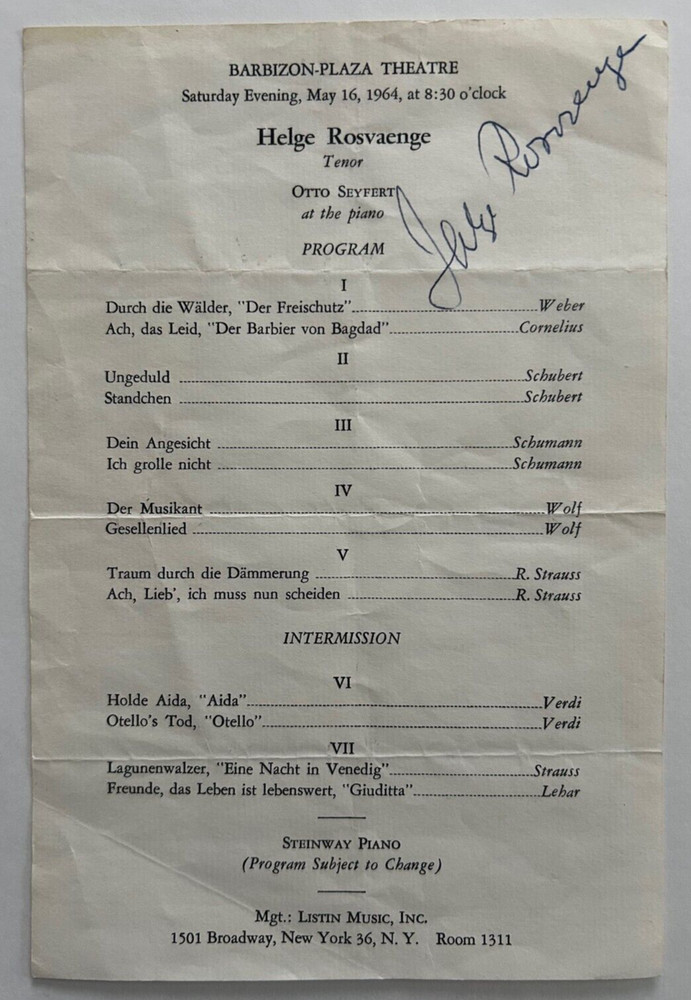 BARBIZON-PLAZA THEATRE
Saturday Evening, May 16, 1964, at 8:30 o'clock
Helge Rosvaenge
Tenor
OTTO SEYFERT
at the piano
Helge Rosvaenge
PROGRAM
I
Durch die Wälder, "Der Freischutz" Weber
Ach, das Leid, "Der Barbier von Bagdad" Cornelius
II
Ungeduld Schubert
Standchen Schubert
III
Dein Angesicht Schumann
Ich grolle nicht Schumann
IV
Der Musikant Wolf
Gesellenlied Wolf
V
Traum durch die Dämmerung R. Strauss
Ach, Lieb', ich muss nun scheiden R. Strauss
INTERMISSION
VI
Holde Aida, "Aida" Verdi
Otello's Tod, "Otello" Verdi
VII
Lagunenwalzer, "Eine Nacht in Venedig" Strauss
Freunde, das Leben ist lebenswert, "Giuditta" Lehar
STEINWAY PIANO
(Program Subject to Change)
Mgt.: LISTIN MUSIC, INC.
1501 Broadway, New York 36, N. Y. Room 1311